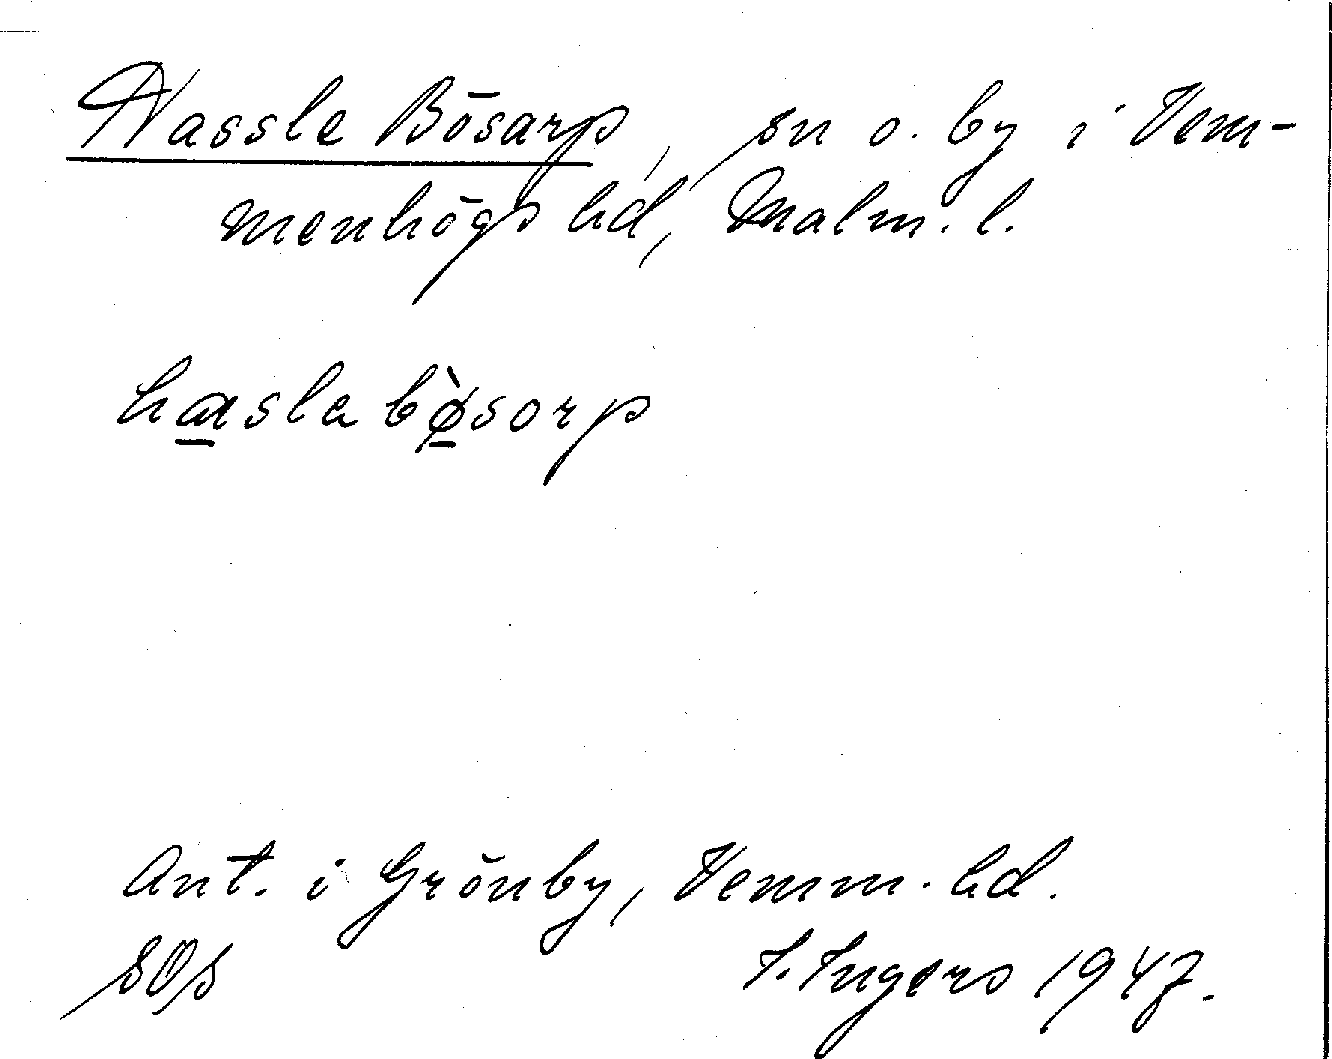 Hassle Bösarp, sn o. by i Vem-
menhögs hd, Malm. l.
hasla bø̀sorp
Ant. i Grönby, Vemm. hd.
I. Ingers 1947.